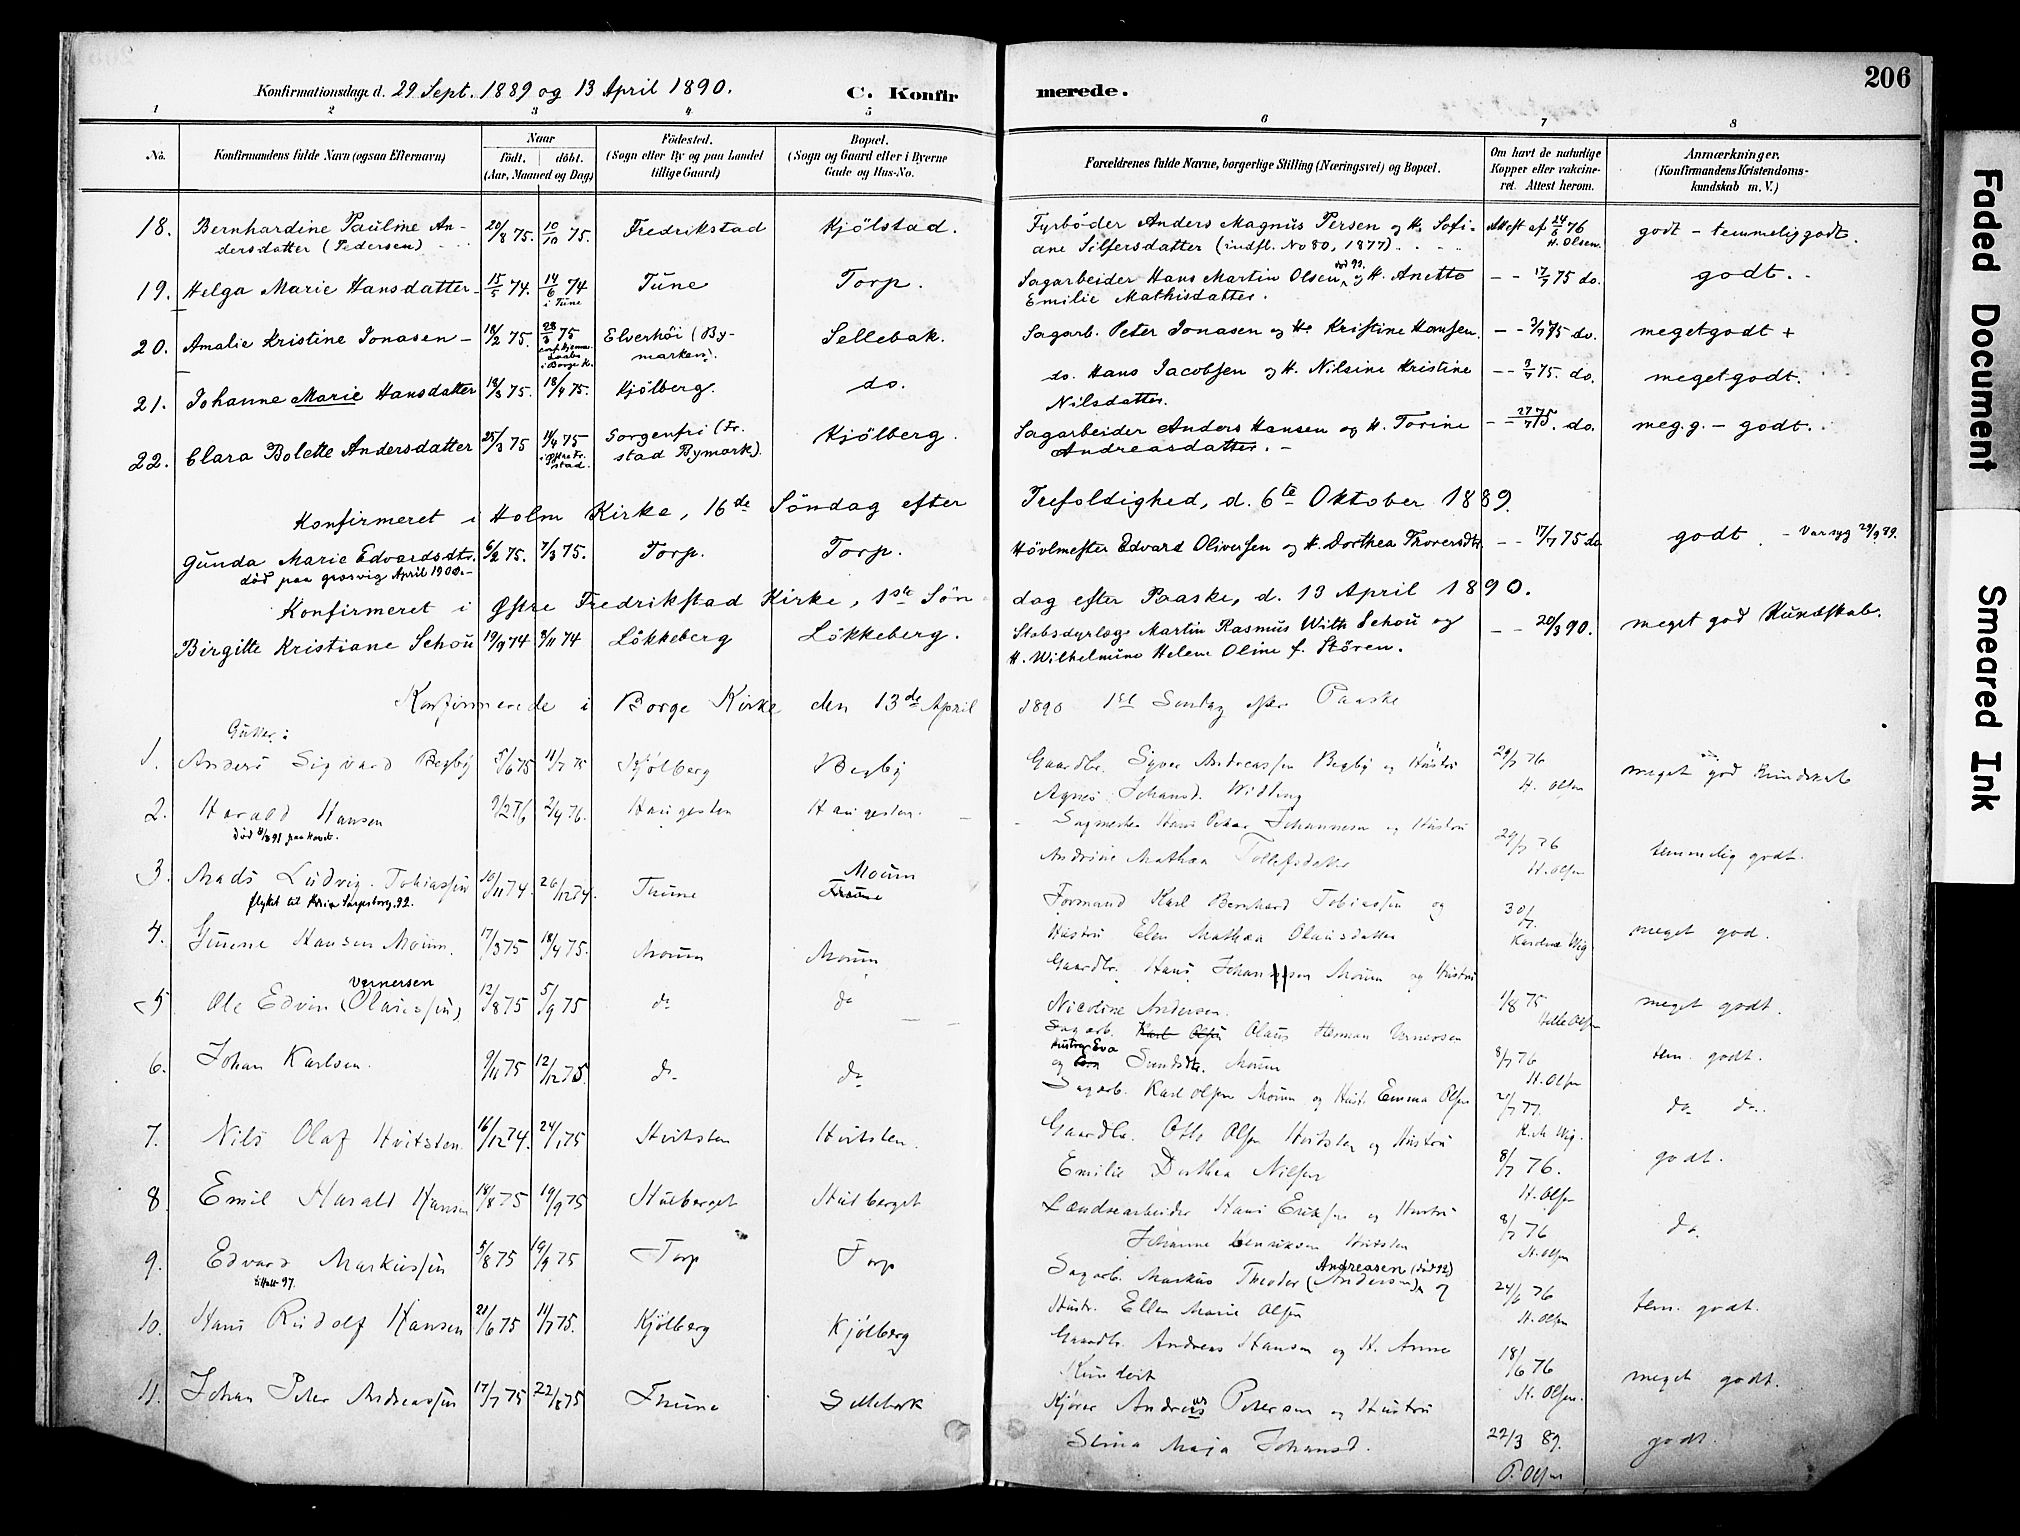 206
Faded Document
Smeared Ink
Konfirmationsdage d. 29 Sept. 1889 og 13 April 1890.
C. Konfir
merede.
1 2 3 4 5 6 7 8
No.
Konfirmandens fulde Navn (ogsaa Efternavn)
Naar
født. døbt.
(Aar, Maaned og Dag)
Fødested.
(Sogn eller By og paa Landet
tillige Gaard)
Bopæl.
(Sogn og Gaard eller i Byerne
Gade og Hus-No.
Forældrenes fulde Navne, borgerlige Stilling (Næringsvei) og Bopæl.
Om havt de naturlige
Kopper eller vakcine-
ret. Attest herom.
Anmærkninger.
(Konfirmandens Kristendoms-
kundskab m. V.)
18. Bernhardine Pauline An- 20/8 75. 10/10 75. Fredrikstad Kjölstad. Fyrböder Anders Magnus Persen og H. Sofi- Attest af 24/5 76 godt - temmelig godt.
dersdatter (Pedersen) ane Silfersdatter (indfl. No 80, 1877). H. Olsen.
19. Helga Marie Hansdatter 15/5 74. 14/6 74 Tune Torp. Sagarbeider Hans Martin Olsen død 92. og H. Anette - - 17/7 75 do. godt.
i Tune Emilie Mathisdatter.
20. Amalie Kristine Jonasen 18/2 75. 28/3 75 Elverhöi (By- Sellebak. Sagarb. Peter Jonasen og H. Kristine Hansen. meget godt +
i Borge K. marken).
21. Johanne Marie Hansdatter 18/3 75. 18/4 75. Kjölberg. do. do. Hans Jacobsen og H. Nilsine Kristine - - 3/7 75. do. meget godt.
Nilsdatter.
22. Clara Bolette Andersdatter 25/3 75 11/4 75 Sorgenfri (Fr. Kjölberg. Sagarbeider Anders Hansen og H. Torine - - 27/7 75. do. meg. g. - godt.
i Østre Fr.stad. stad Bymark). Andreasdatter. -
Konfirmeret i Holm Kirke, 16de Söndag efter Trefoldighed, d. 6te Oktober 1889.
Gunda Marie Edvardsdtr. 6/2 75. 7/3 75. Torp. Torp. Hövlmester Edvard Oliversen og H. Dorthea Thoresdtr - - 17/7 75 do godt. - Var syg 29/9 89.
död paa April 1900. -
Konfirmeret i Østre Fredrikstad Kirke, 1ste Sön- dag efter Paaske, d. 13 April 1890.
Birgitte Kristiane Schou 19/9 74 8/11 74 Lökkeberg Lökkeberg. Stabsdyrlæge Martin Rasmus With Schou og - - 20/3 90. meget god Kundskab.
H. Wilhelmine Helene Oline f. Stören.
Konfirmerede i Borge Kirke den 13de April 1890 1ste Søndag efter Paaske
Gutter:
1. Anders Sigvard Begby 5/6 75 11/7 75 Kjølberg Begby Gaardbr. Syver Andreassen Begby og Hustru 29/7 76 meget god Kundskab
Agnes Johansd. Widling H. Olsen
2. Harald Hansen 9/2 76 2/4 76. Haugesten Haugesten. Sagmester Hans Oskar Johannesen og Hustru 29/7 76 temmelig godt.
død 91 paa Havet. Andrine Mathea Tollefsdatter H. Olsen
3. Mads Ludvig Tobiassen 16/11 74. 26/12 74. Thune Moum Thune Formand Karl Bernhard Tobiassen og 30/7 meget god.
flyttet til Sarpsborg 92. Hustru Elen Mathea Olausdatter
4. Gunne Hansen Moum. 17/3 75 18/4 75. Moum Moum Gaardbr. Hans Johannsen Moum og Hustru 1/8 75 meget godt.
Nicoline Andersen. Helle Olsen
5 Ole Edvin (Olaussen) Vernersen 12/8 75 5/9 75 do do Sagarb. Karl Olsen Olaus Herman Vernersen 8/7 76 tem. godt.
Hustru Eva og Sundsdtr. Moum H. Olsen
6. Johan Karlsen. 9/11 75 12/12 75. do do Sagarb. Karl Olsen Moum og Hust. Emma Olsen 21/7 77. do do.
7. Nils Olaf Hvitsten. 16/12 74. 24/1 75 Hvitsten Hvitsten. Gaardbr. Otto Olsen Hvitsten og Hustru 8/7 76. godt.
Emilie Dorthea Nilsen H. Olsen
8 Emil Harald Hansen 18/8 75 19/9 75 Hulberget Hulberget Landsearbeider Hans Eriksen og Hustru 8/7 76 do.
Johanne Henriksen Hvitsten H. Olsen
9. Edvard Markussen 5/8 75 19/9 75 Torp Torp Sagarb. Markus Theodor (Andersen) Andreasen (død 92) og 24/6 76 tem. godt.
Hustr. Ellen Marie Olsen H. Olsen
10. Hans Rudolf Hansen 21/6 75 11/7 75. Kjølberg Kjølberg Gaardbr. Andreas Hansen og H. Anne 18/6 76 meget godt.
H. Olsen.
11. Johan Peter Andreassen 17/7 75 22/8 75 Thune Sellebak Kjører Andreas Petersen og Hustru 22/3 89. godt.
Stina Maja Johansd. P. Olsen